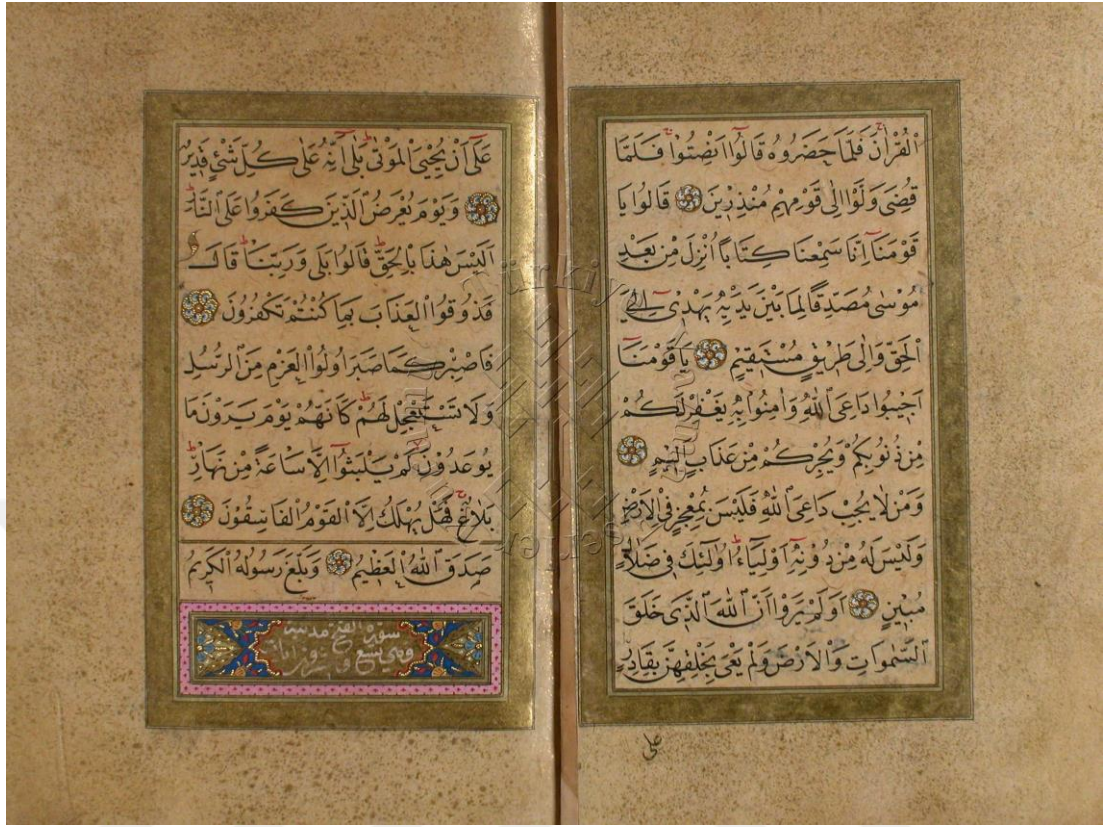 الْقُرْاٰنَ فَلَمَّا حَضَرُوهُ قَالُٓوا اَنْصِتُواۚ فَلَمَّا
قُضِىَ وَلَّوْا اِلٰى قَوْمِهِمْ مُنْذِرِينَ قَالُوا يَا
قَوْمَنَٓا اِنَّا سَمِعْنَا كِتَابًا اُنْزِلَ مِنْ بَعْدِ
مُوسٰى مُصَدِّقًا لِمَا بَيْنَ يَدَيْهِ يَهْدِٓى اِلَى
الْحَقِّ وَاِلٰى طَرِيقٍ مُسْتَقِيمٍ يَا قَوْمَنَٓا
اَجِيبُوا دَاعِىَ اللّٰهِ وَاٰمِنُوا بِهِ يَغْفِرْ لَكُمْ
مِنْ ذُنُوبِكُمْ وَيُجِرْكُمْ مِنْ عَذَابٍ اَلِيمٍ
وَمَنْ لَا يُجِبْ دَاعِىَ اللّٰهِ فَلَيْسَ بِمُعْجِزٍ فِى الْاَرْضِ
وَلَيْسَ لَهُ مِنْ دُونِهِٓ اَوْلِيَٓاءُۜ اُولٰٓئِكَ فِى ضَلَالٍ
مُبِينٍ اَوَلَمْ يَرَوْا اَنَّ اللّٰهَ الَّذِى خَلَقَ
السَّمٰوَاتِ وَالْاَرْضَ وَلَمْ يَعْىَ بِخَلْقِهِنَّ بِقَادِرٍ
عَلٰى
عَلٰٓى اَنْ يُحْيِىَ الْمَوْتٰىۜ بَلٰٓى اِنَّهُ عَلٰى كُلِّ شَىْءٍ قَدِيرٌ
وَيَوْمَ يُعْرَضُ الَّذِينَ كَفَرُوا عَلَى النَّارِۜ
اَلَيْسَ هٰذَا بِالْحَقِّۜ قَالُوا بَلٰى وَرَبِّنَاۜ قَالَ
فَذُوقُوا الْعَذَابَ بِمَا كُنْتُمْ تَكْفُرُونَ
فَاصْبِرْ كَمَا صَبَرَ اُولُوا الْعَزْمِ مِنَ الرُّسُلِ
وَلَا تَسْتَعْجِلْ لَهُمْۜ كَاَنَّهُمْ يَوْمَ يَرَوْنَ مَا
يُوعَدُونَۙ لَمْ يَلْبَثُٓوا اِلَّا سَاعَةً مِنْ نَهَارٍۜ
بَلَاغٌۚ فَهَلْ يُهْلَكُ اِلَّا الْقَوْمُ الْفَاسِقُونَ
صَدَقَ اللّٰهُ الْعَظِيمُ وَبَلَّغَ رَسُولُهُ الْكَرِيمُ
سورة الفتح مدنية
وهى تسع وعشرون آيات
Türkiye